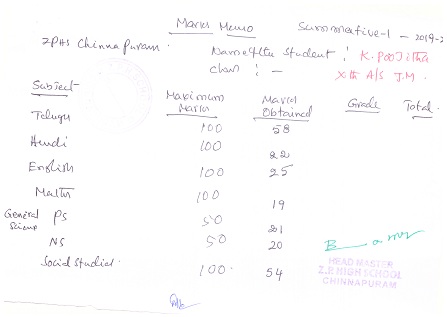 Marks Memo Summative-1 - 2019-2
ZPHS Chinnapuram. Name of the Student : K. Poojitha
Class : - Xth A/S T.M.
Subject Maximum Marks Marks Obtained Grade Total.
Telugu 100 58
Hindi 100 22
English 100 25
Maths 100 19
General Science PS 50 21
NS 50 20
Social Studies. 100. 54
HEAD MASTER
Z.P. HIGH SCHOOL
CHINNAPURAM